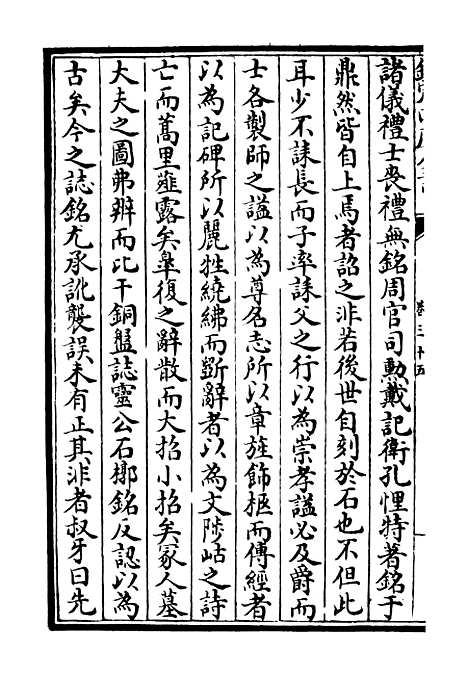 諸儀禮士喪禮無銘周官司勲戴記衛孔悝特著銘于
鼎然皆自上焉者詔之非若後世自刻於石也不但此
耳少不誄長而子率誄父之行以為崇孝謚必及爵而
士各製師之謚以為尊名志所以章旌飾柩而傅經者
以為記碑所以麗牲繞紼而斵辭者以為文陟岵之詩
亡而蒿里薤露矣臯復之辭散而大招小招矣冢人墓
大夫之圖弗辨而比干銅盤誌靈公石槨銘反認以為
古矣今之誌銘尤承訛襲誤未有正其非者叔牙曰先
卷三十五